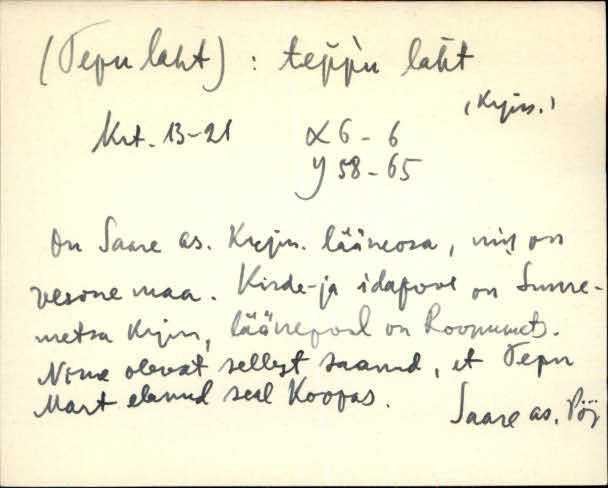 (Tepu laht) : teppu laht
(Krjm.)
Krt. 13-21 X 6 - 6
Y 58 - 65
On Saare as. Krjm. lääneosa, mis on
vesone maa. Kirde- ja idapool on Suure-
metsa Krjm, läänepool on Roopumets.
Nime olevat sellest saanud, et Tepu
Mart elanud seal Koopas.
Saare as. Pöj